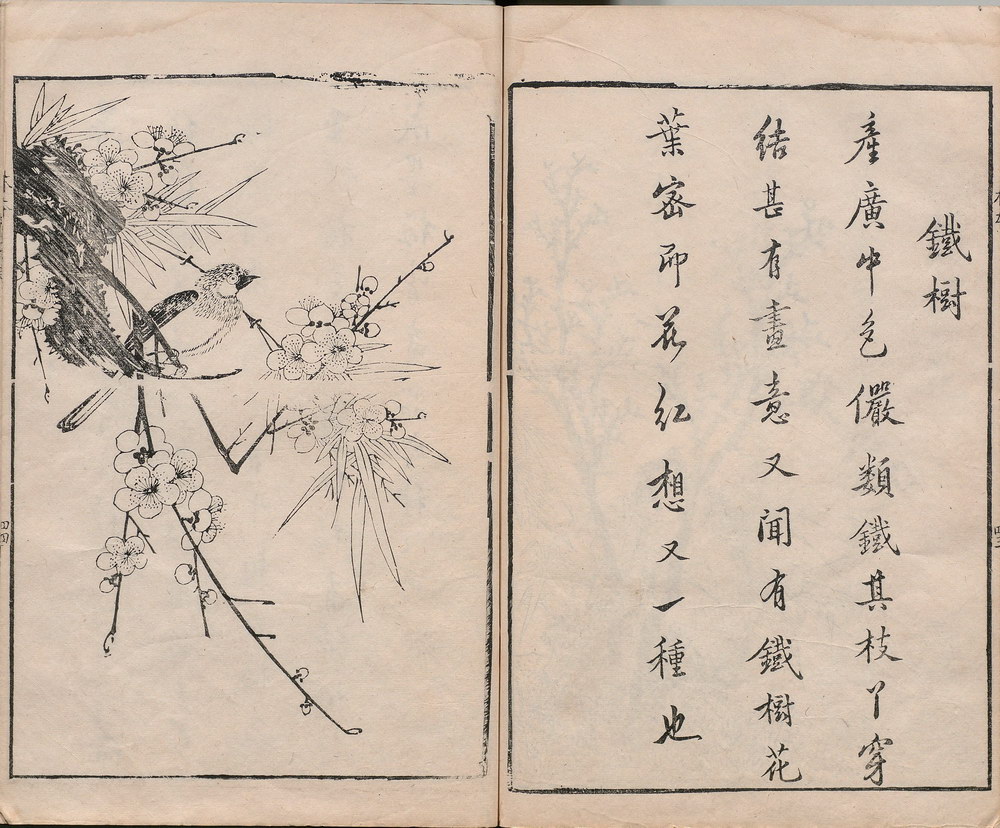 鐵樹
產廣中色儼類鐵其枝丫穿
結甚有畫意又聞有鐵樹花
葉密而花紅想又一種也
四四